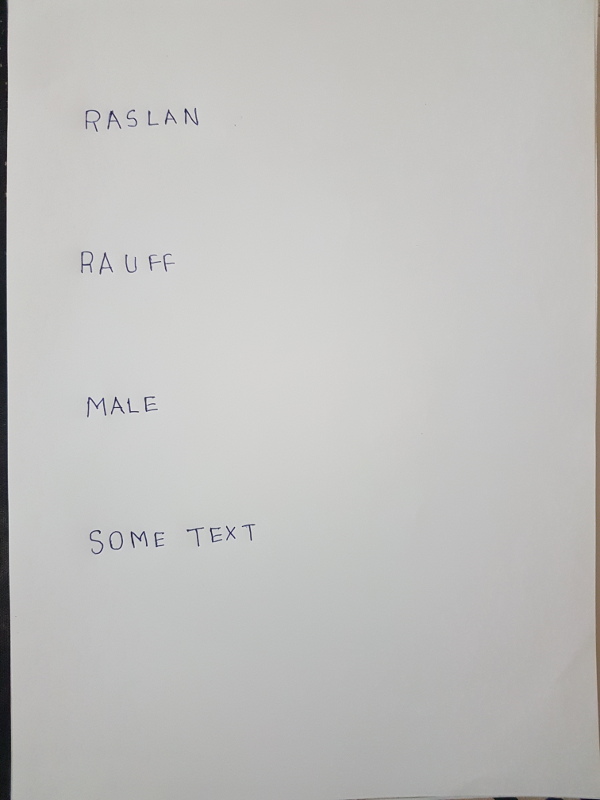 RASLAN
RAUFF
MALE
SOME TEXT